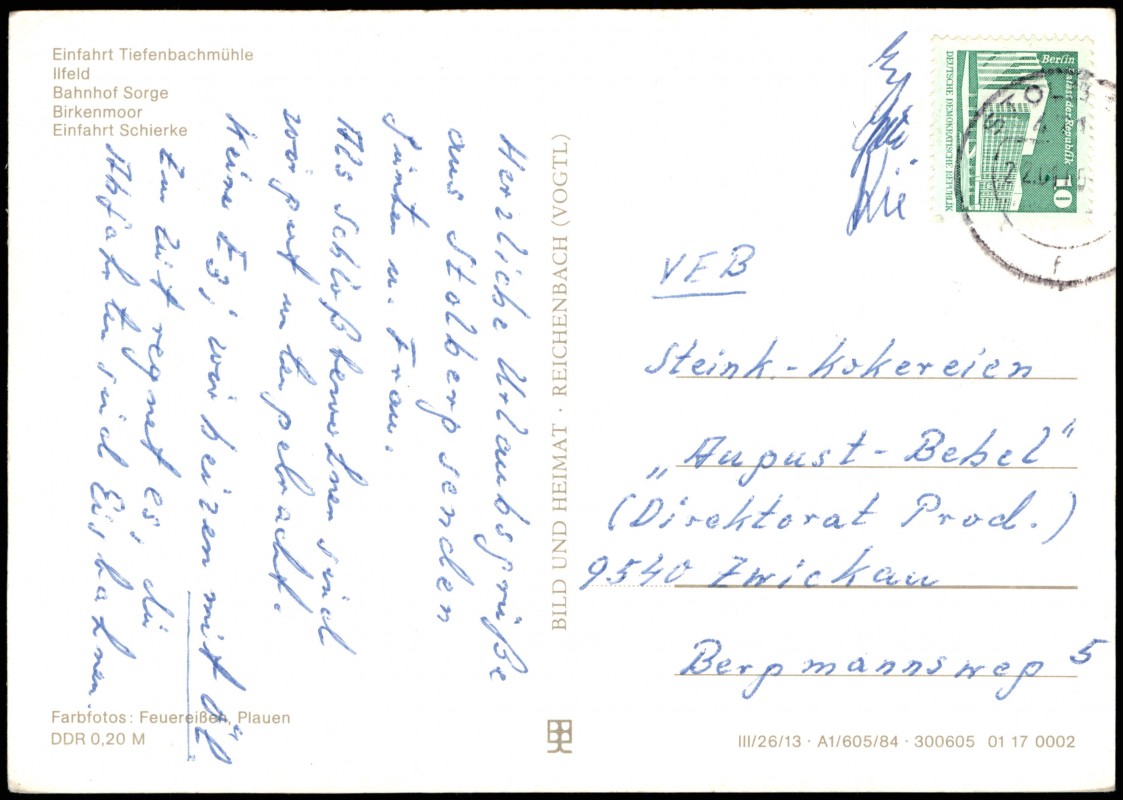 Einfahrt Tiefenbachmühle
Ilfeld
Bahnhof Sorge
Birkenmoor
Einfahrt Schierke
Herzliche Urlaubsgrüße
aus Stolberg senden
u. Frau.
Als Schloßbewohner sind
wir gut untergebracht.
Keine Eg; wir heizen mit Öl
Zur Zeit regnet es, die
Abfahrten sind Eisbahnen.
Farbfotos: Feuereißen, Plauen
DDR 0,20 M
BILD UND HEIMAT · REICHENBACH (VOGTL)
DEUTSCHE DEMOKRATISCHE REPUBLIK
Berlin
Palast der Republik
10
VEB
Steink.-Kokereien
„August-Bebel"
(Direktorat Prod.)
9540 Zwickau
Bergmannsweg 5
III/26/13 · A1/605/84 · 300605 01 17 0002